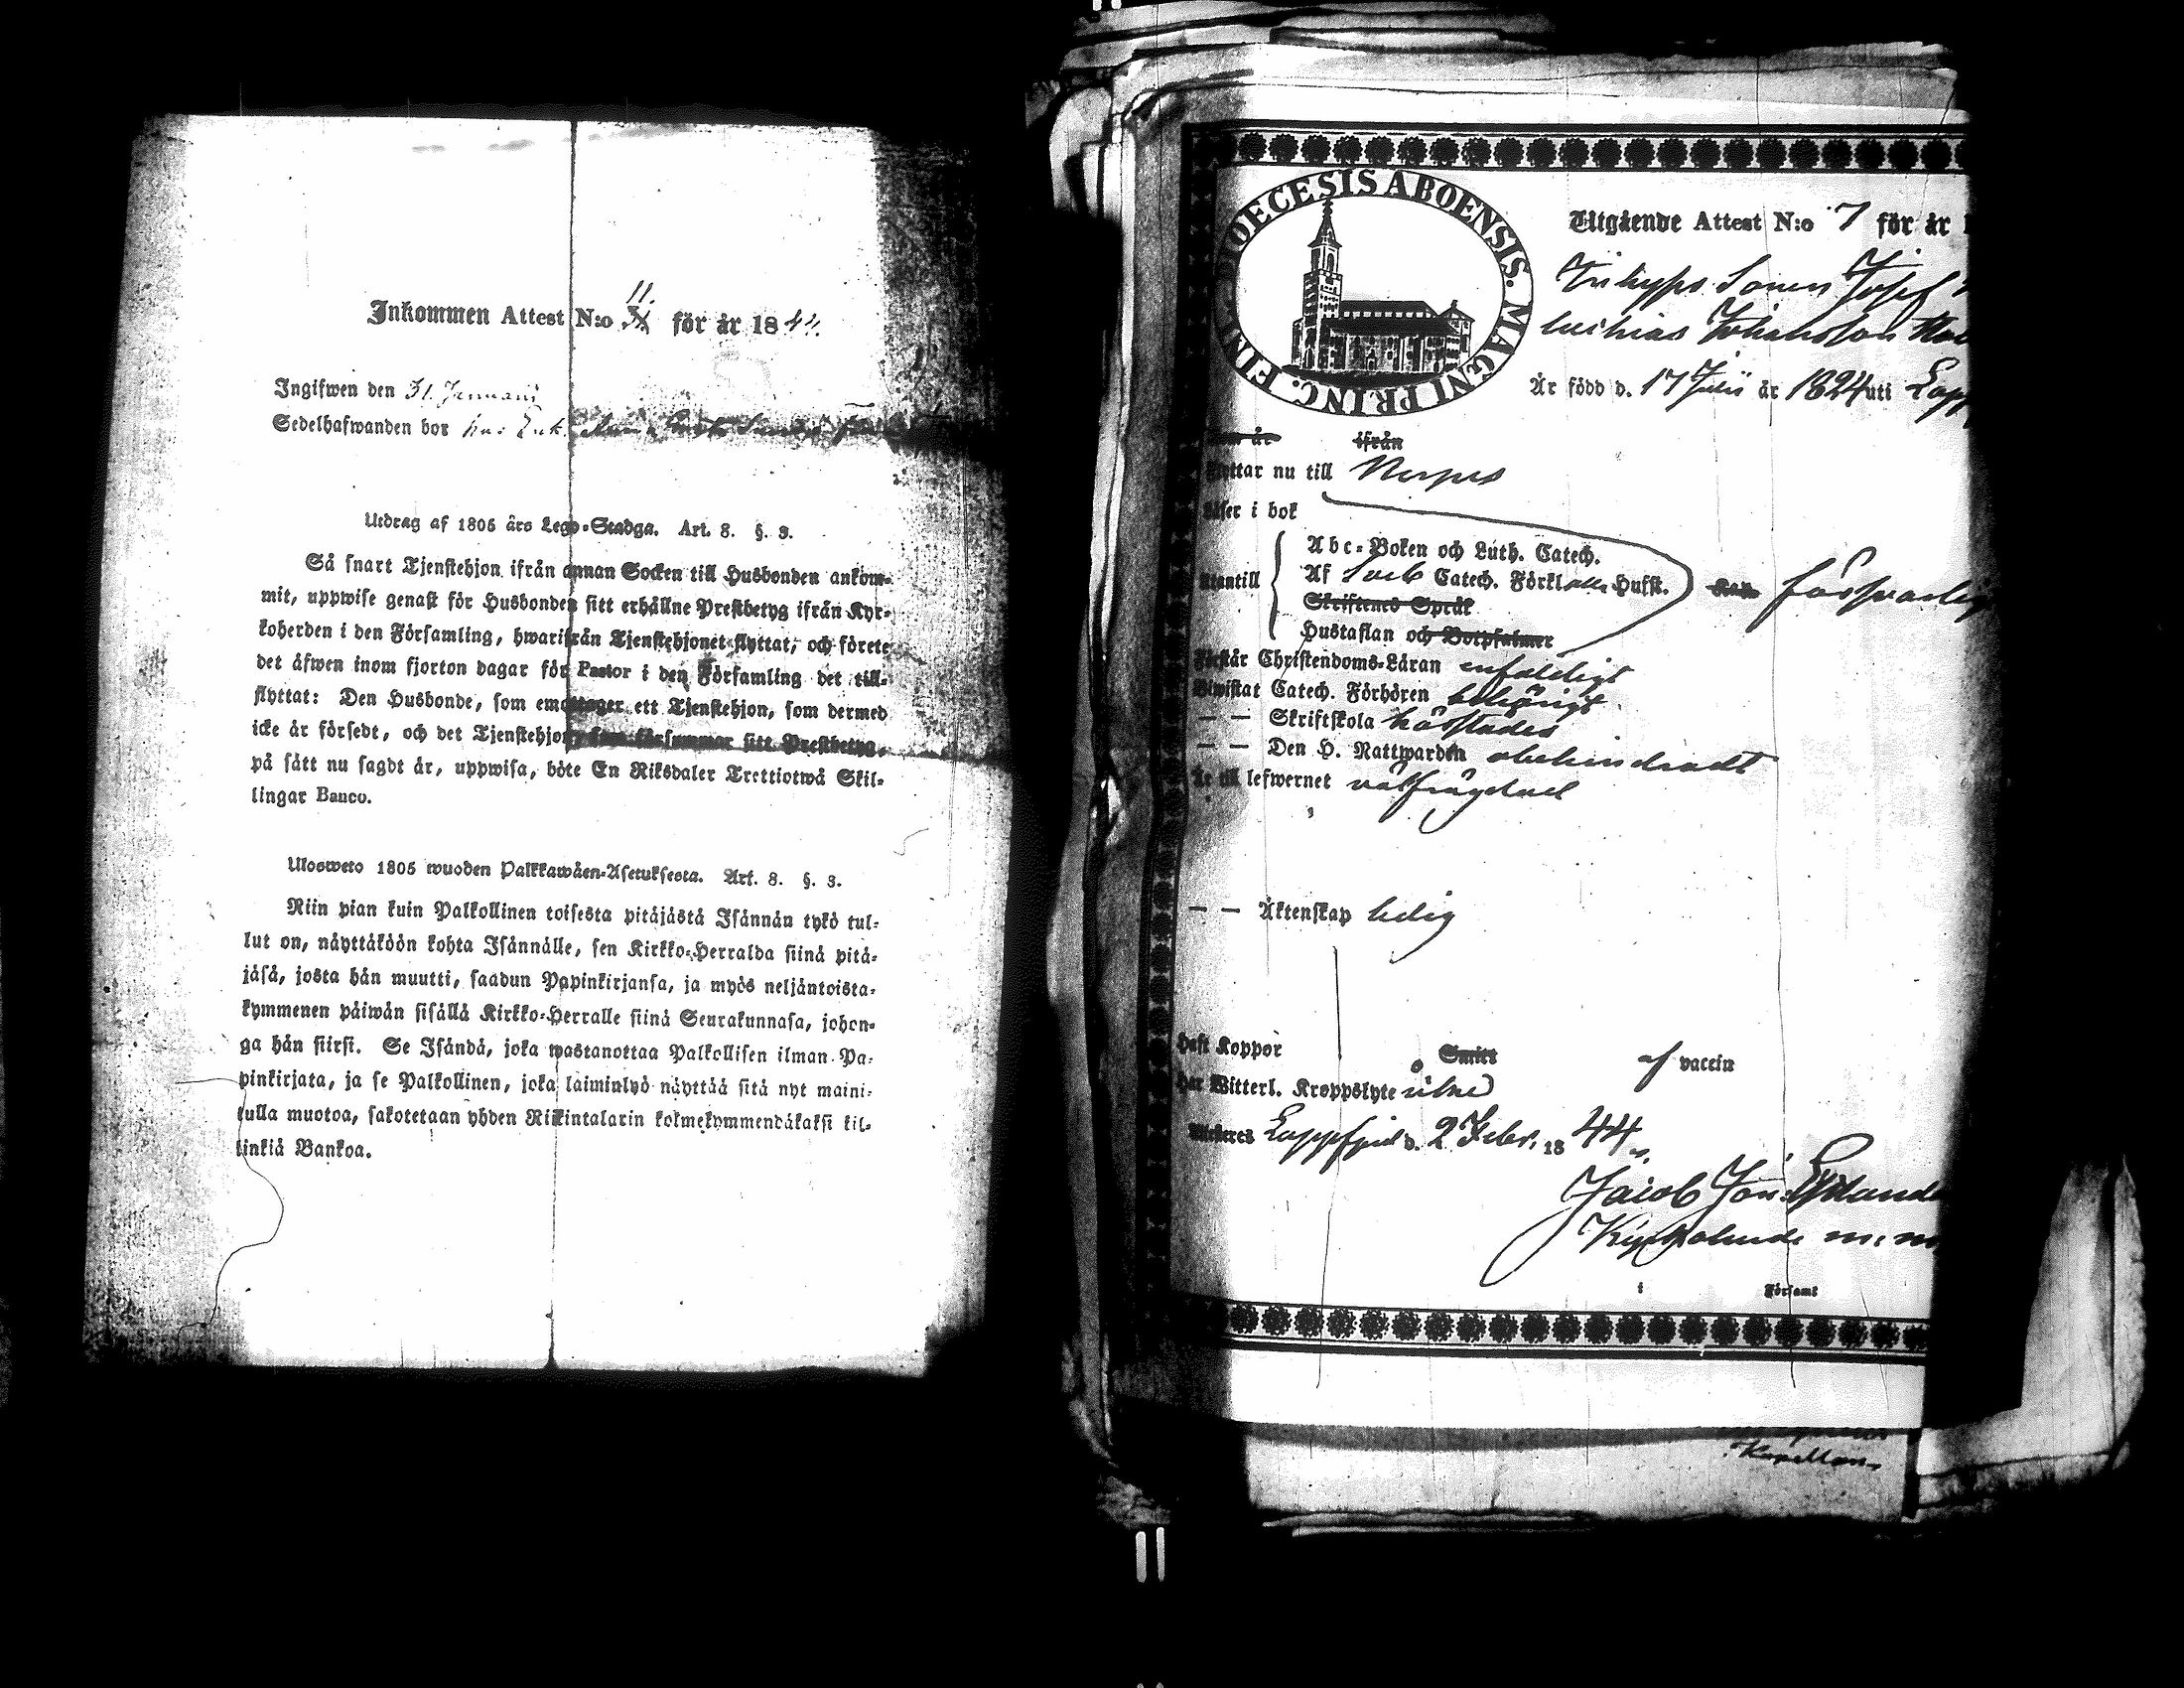 Inkommen Attest N:o 11. för år 1844.
Ingifwen den 31. Januarii
Sedelhafwanden bor hos Enk.
Utdrag af 1805 års Lego-Stadga. Art. 8. §. 3.
Så snart Tjenstehjon ifrån annan Socken till Husbonden ankom-
mit, uppwise genast för Husbonden sitt erhållne Prestbetyg ifrån Kyr-
koherden i den Församling, hwarifrån Tjenstehjonet flyttat, och förete
det äfwen inom fjorton dagar för Pastor i den Församling det till-
flyttat: Den Husbonde, som emottager ett Tjenstehjon, som dermed
icke är försedt, och det Tjenstehjon, som försummar sitt Prestbetyg,
på sätt nu sagdt är, uppwisa, böte En Riksdaler Trettiotwå Skil-
lingar Banco.
Ulosweto 1805 wuoden Palkkawäen-Asetuksesta. Art. 8. §. 3.
Niin pian kuin Palkollinen toisesta pitäjästä Isännän tykö tul-
lut on, näyttäköön kohta Isännälle, sen Kirkko-Herralda siinä pitä-
jäsä, josta hän muutti, saadun Papinkirjansa, ja myös neljäntoista-
kymmenen päiwän sisällä Kirkko-Herralle siinä Seurakunnasa, johon-
ga hän siirsi. Se Isändä, joka wastanottaa Palkollisen ilman Pa-
pinkirjata, ja se Palkollinen, joka laiminlyö näyttää sitä nyt maini-
tulla muotoa, sakotetaan yhden Riikintalarin kolmekymmendäkaksi kil-
linkiä Bankoa.
DIOECESIS ABOENSIS. MAGNI PRINC. FINL.
Utgående Attest N:o 7 för år 1
Sonen Josef
Johansson
Är född d. 17 Julii år 1824 uti Lapp
ifrån
Flyttar nu till Nerpes
Läser i bok
Abc-Boken och Luth. Catech.
Utantill Af Sveb Catech. Förkl alla Hufst. försvarlig
Skriftenes Språk
Hustaflan och Botpsalmer
Förstår Christendoms-Läran enfaldigt
Biwistat Catech. Förhören behörigt
— — Skriftskola härstädes
— — Den H. Nattwarden obehindradt
Är till lefwernet välfrägdad
— — Äktenskap ledig
Haft Koppor Smitt af vaccin
Har Witterl. Kroppslyte icke
Attesteres Lappfjerd d. 2 Febr. 1844.
Jacob Jon.
Kyrkoherde m. m.
i Församl
Kapellan.